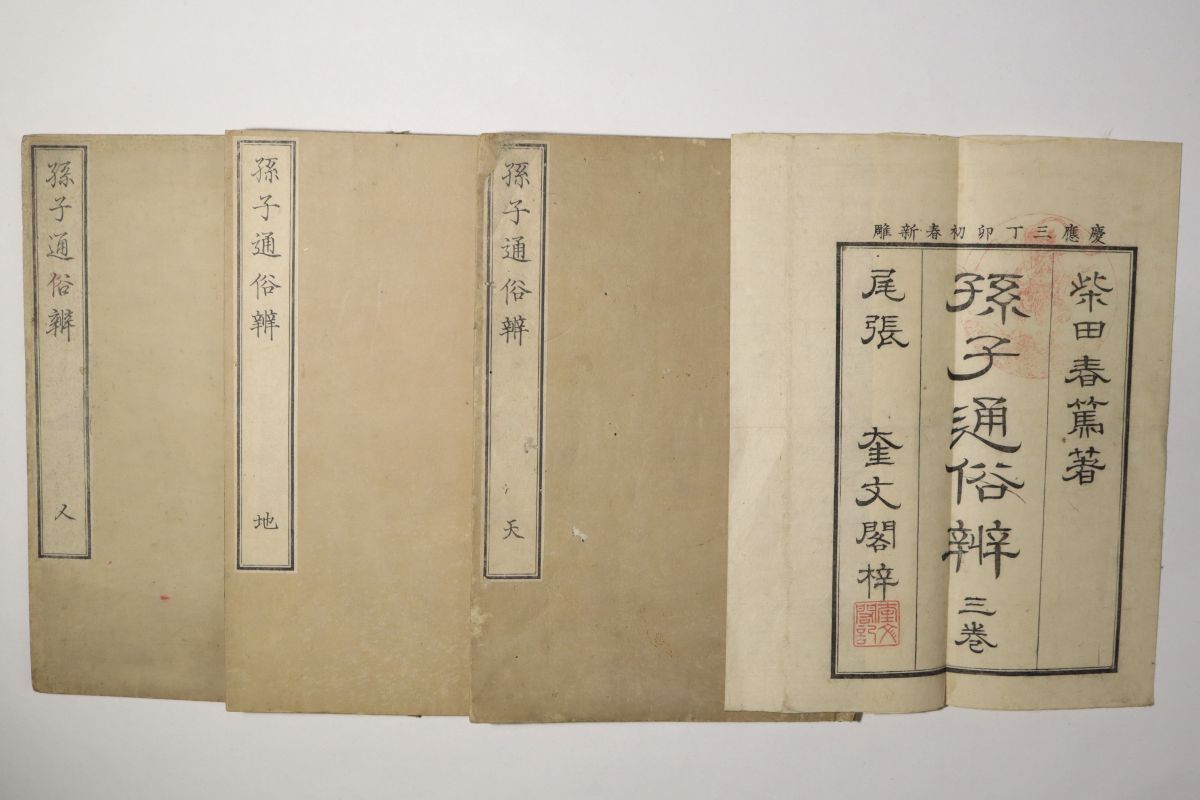 慶應三丁卯初春新雕
柴田春篤著
孫子通俗辨 三卷
尾張 奎文閣梓
奎文閣記
孫子通俗辨 天
孫子通俗辨 地
孫子通俗辨 人